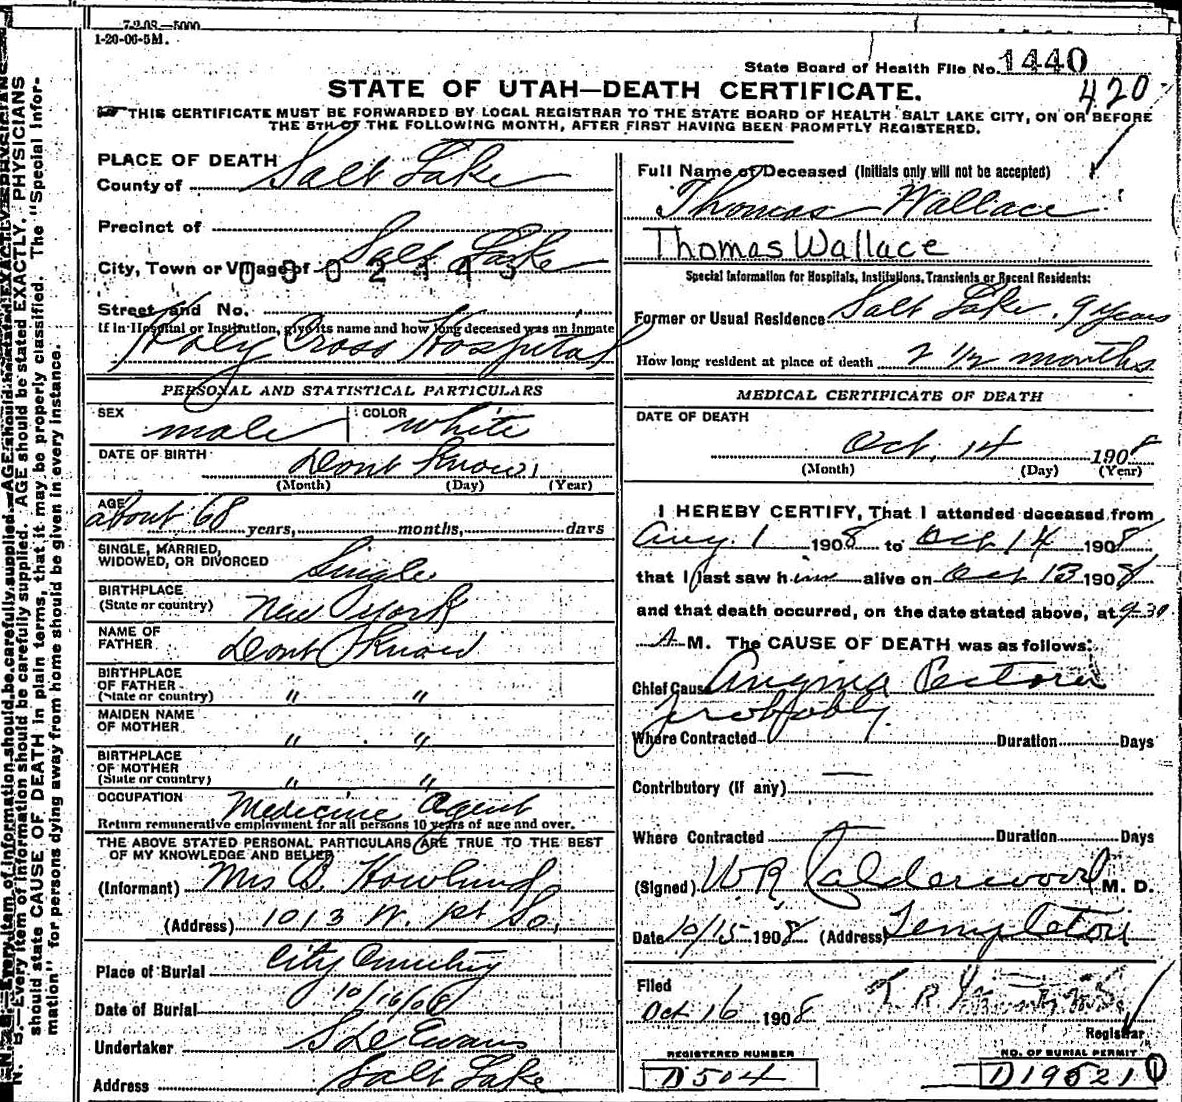 7-2-08—5000
1-20-06-5M.
State Board of Health File No. 1440
STATE OF UTAH—DEATH CERTIFICATE.
420
THIS CERTIFICATE MUST BE FORWARDED BY LOCAL REGISTRAR TO THE STATE BOARD OF HEALTH SALT LAKE CITY, ON OR BEFORE
THE 8TH OF THE FOLLOWING MONTH, AFTER FIRST HAVING BEEN PROMPTLY REGISTERED.
N. B.—Every item of information should be carefully supplied. AGE should be stated EXACTLY. PHYSICIANS
should state CAUSE OF DEATH in plain terms, that it may be properly classified. The "Special Infor-
mation" for persons dying away from home should be given in every instance.
PLACE OF DEATH
County of Salt Lake
Precinct of
City, Town or Village of Salt Lake
Street and No.
If in Hospital or Institution, give its name and how long deceased was an inmate
Holy Cross Hospital
PERSONAL AND STATISTICAL PARTICULARS
SEX male COLOR white
DATE OF BIRTH Dont Know
(Month) (Day) (Year)
AGE about 68 years, months, days
SINGLE, MARRIED,
WIDOWED, OR DIVORCED Single
BIRTHPLACE
(State or country) New York
NAME OF
FATHER Dont Know
BIRTHPLACE
OF FATHER
(State or country) " "
MAIDEN NAME
OF MOTHER " "
BIRTHPLACE
OF MOTHER
(State or country) " "
OCCUPATION Medicine Agent
Return remunerative employment for all persons 10 years of age and over.
THE ABOVE STATED PERSONAL PARTICULARS ARE TRUE TO THE BEST
OF MY KNOWLEDGE AND BELIEF
(Informant) Mrs B.
(Address) 1013 W. 1st So.
Place of Burial City Cemetery
Date of Burial 10/16/08
Undertaker S D Evans
Address Salt Lake
Full Name of Deceased (Initials only will not be accepted)
Thomas Wallace
Thomas Wallace
Special Information for Hospitals, Institutions, Transients or Recent Residents:
Former or Usual Residence Salt Lake. 9 years
How long resident at place of death 2 1/2 months
MEDICAL CERTIFICATE OF DEATH
DATE OF DEATH
Oct. 14 1908
(Month) (Day) (Year)
I HEREBY CERTIFY, That I attended deceased from
Aug. 1 1908 to Oct 14 1908
that I last saw him alive on Oct 13 1908
and that death occurred, on the date stated above, at 9-30
A M. The CAUSE OF DEATH was as follows:
Chief Cause Angina Pectoris
probably
Where Contracted Duration Days
Contributory (If any) —
Where Contracted Duration Days
(Signed) W.R. Calderwood M. D.
Date 10/15 1908 (Address) Templeton
Filed
Oct 16 1908
Registrar
REGISTERED NUMBER
D504
NO. OF BURIAL PERMIT
D19521 1